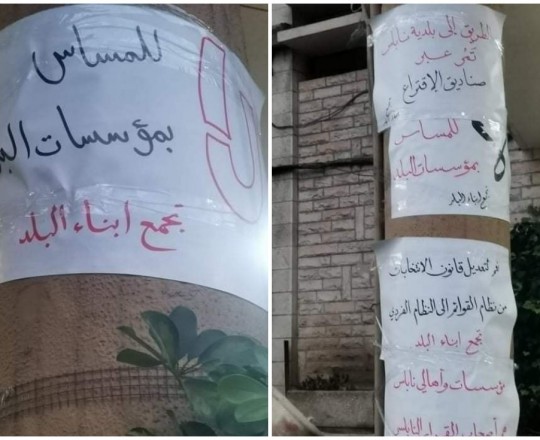 لا
للمساس
بمؤسسات
تجمع ابناء البلد
الطريق إلى بلدية نابلس
تمر عبر
صناديق الإقتراع
لا
للمساس
بمؤسسات البلد
تجمع ابناء البلد
لتعديل قانون الانتخابات
من نظام القوائم الى النظام الفردي
تجمع ابناء البلد
مؤسسات وأهالي نابلس